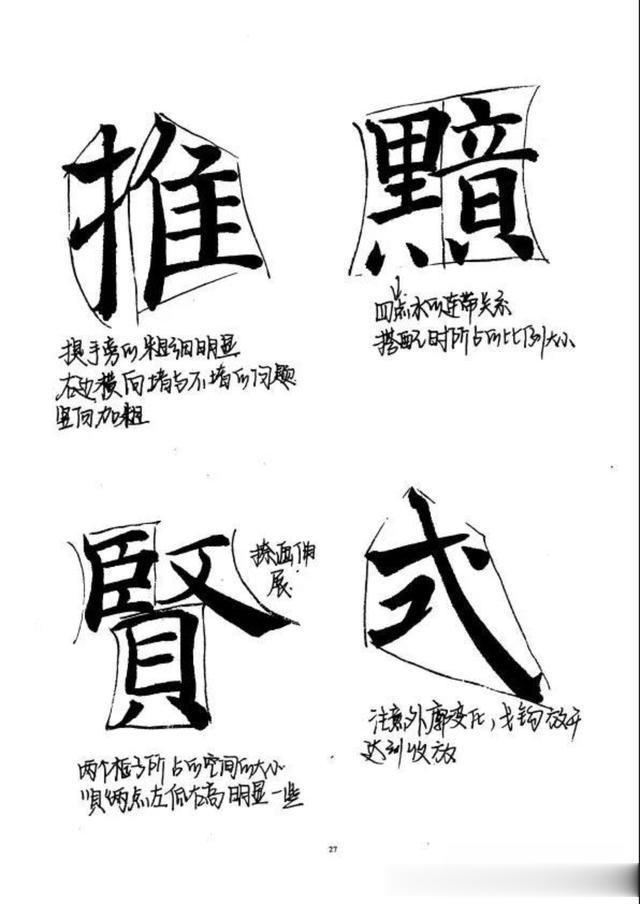 推
黯
提手旁的粗细明显
右边横向堵与不堵的问题
竖向加粗
四点水的连带关系
搭配时所占的比例大小
賢
捺画伸
展
式
两个框子所占的空间的大小
贝俩点左低右高明显一些
注意外廓变化，戈钩放开
达到收放
27